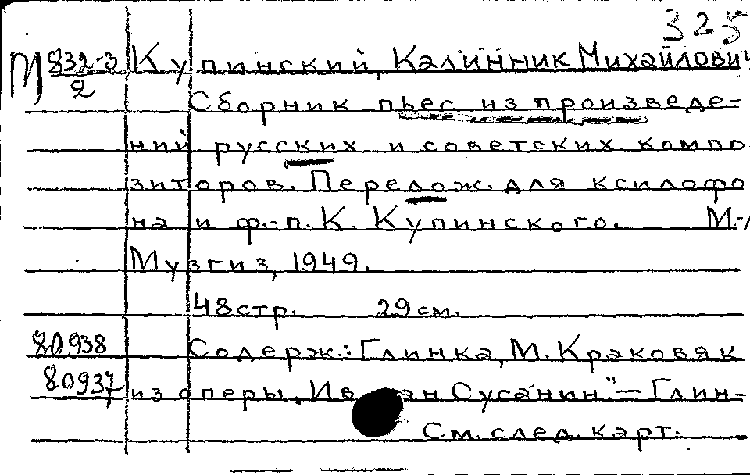 325
М 832-3 Купинский, Калинник Михайлович
2
Сборник пьес из произведе-
ний русских и советских компо
зиторов. Перелож. для ксилофо
на и ф.-п. К. Купинского. М.-
Музгиз, 1949.
48 стр. 29 см.
80938 Содерж.: Глинка, М. Краковяк
80937 из оперы „Иван Сусанин" — Глин-
См. след. карт.